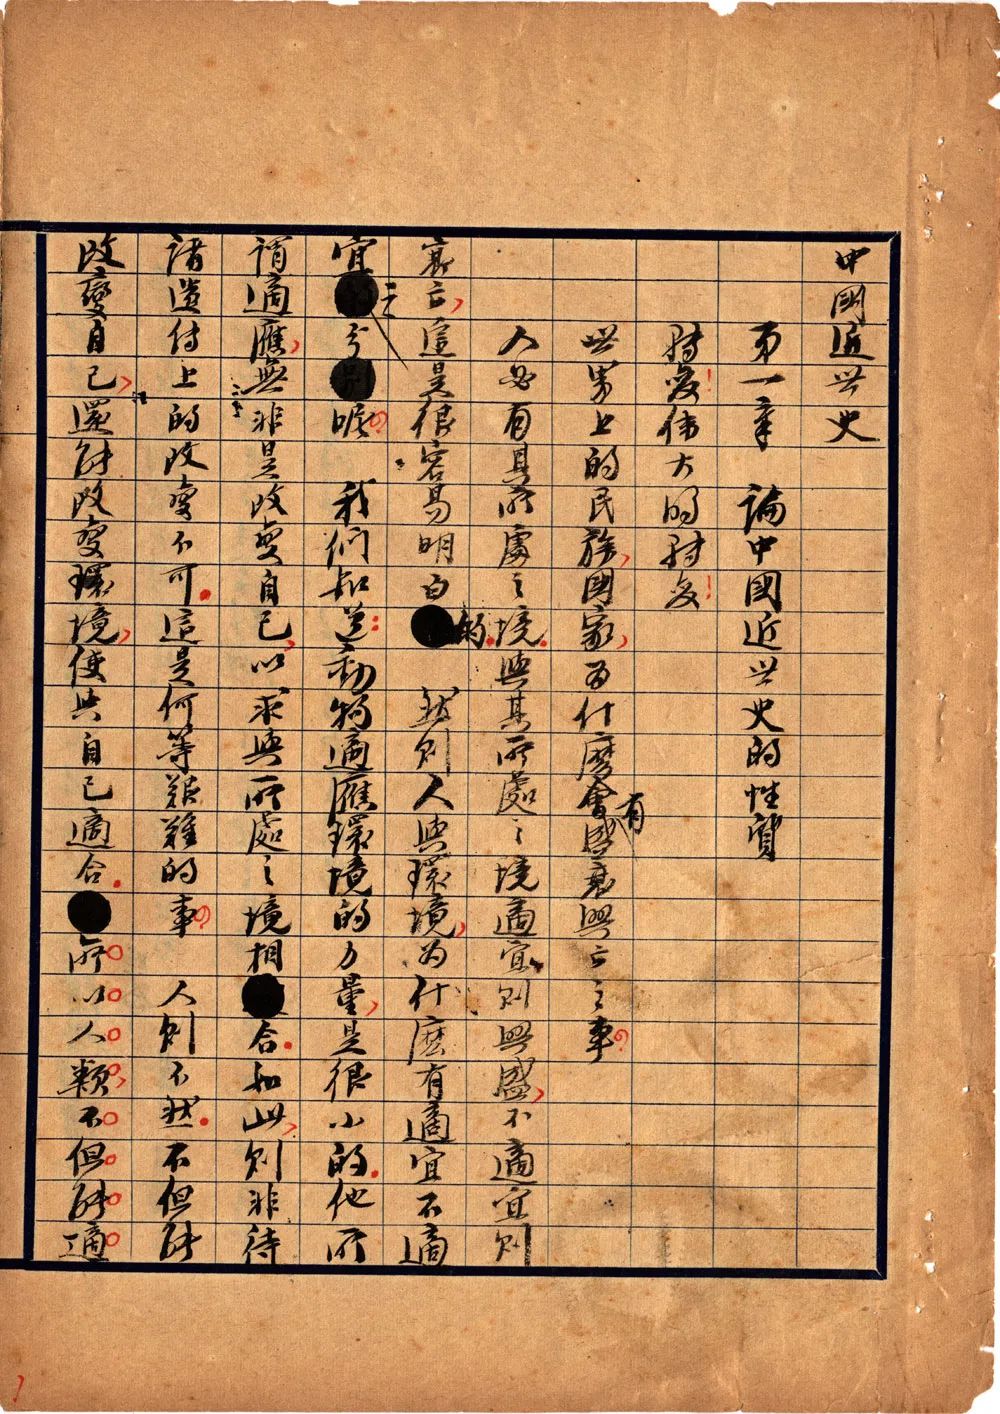 中國近世史
第一章　論中國近世史的性質
轉變!偉大的轉變!
世界上的民族,國家,為什麼會有盛衰興亡之事?
人必有其所處之境.與其所處之境適宜則興盛,不適宜則
衰亡,這是很容易明白的.　然則人與環境,為什麼有適宜不適
宜之分呢?　我們知道:動物適應環境的力量,是很小的.他所
謂適應,無非是改變自己,以求與所處之境相合.如此,則非待
諸遺傳上的改變不可.這是何等艱難的事?　人則不然.不但能
改變自己,還能改變環境,使其自己適合.所以人類不但能適